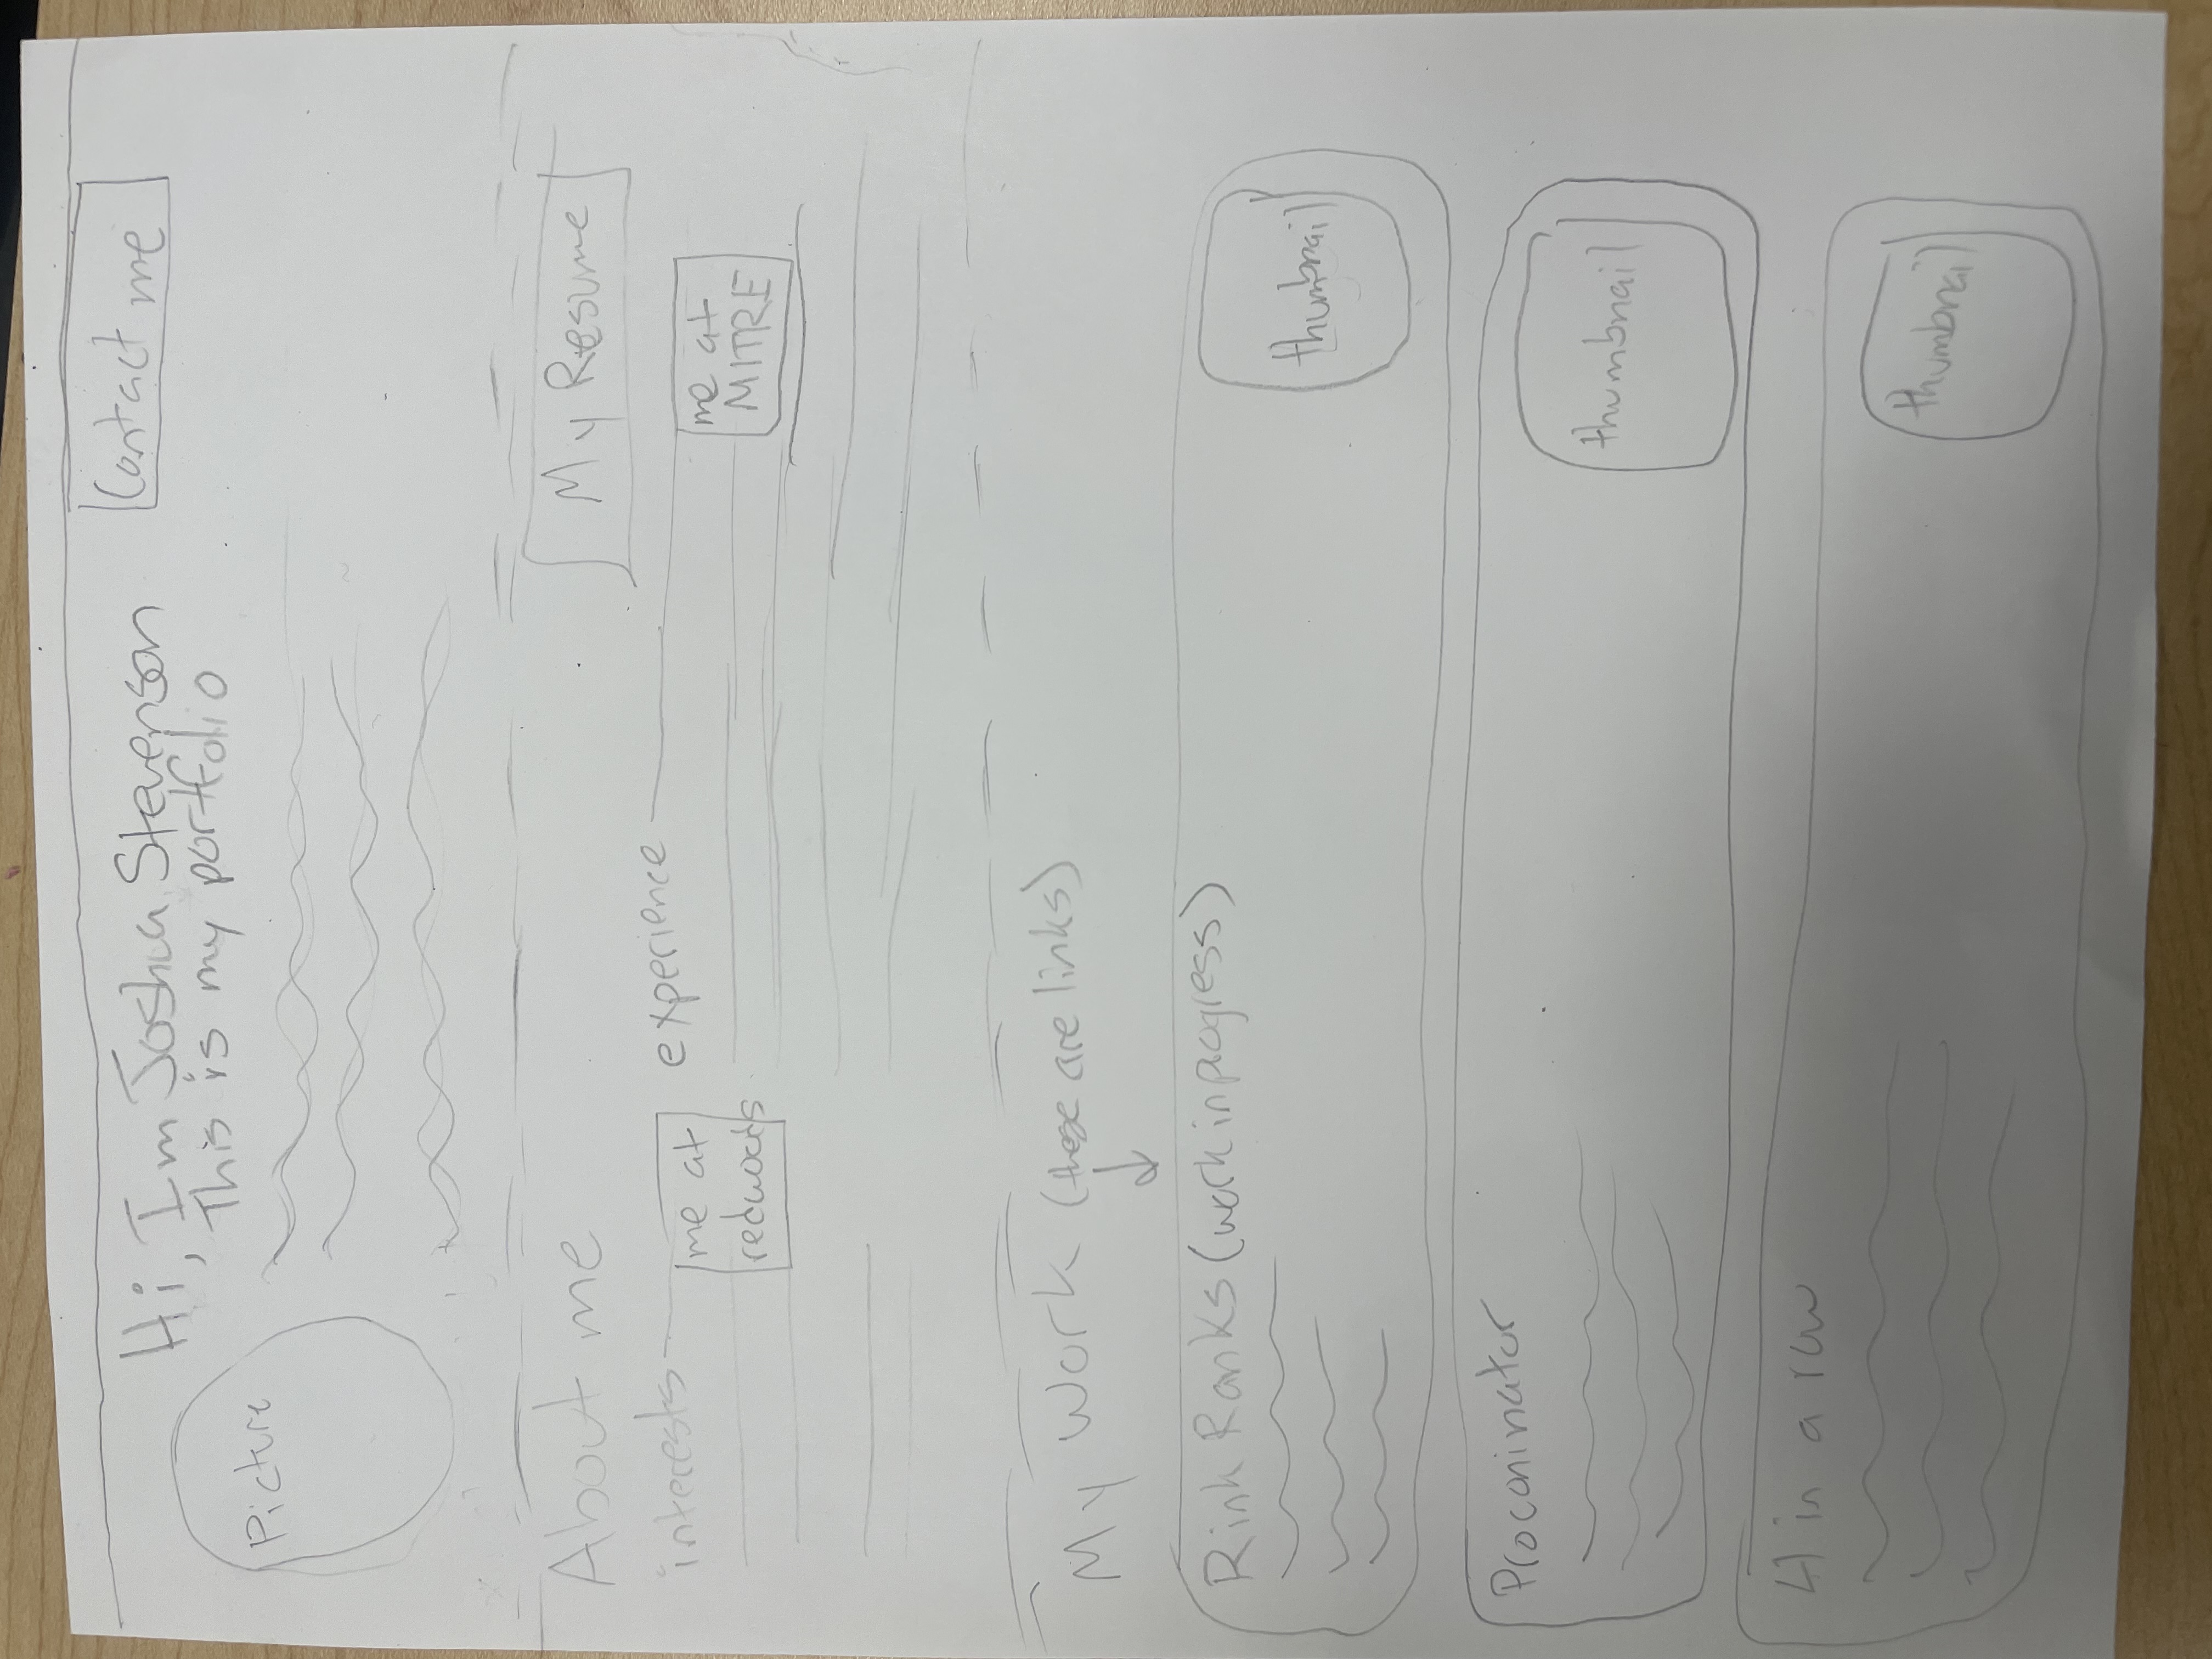 Hi, Im Joshua Stevenson
Contact me
This is my portfolio
Picture
About me
My Resume
interests
me at
redwoods
experience
me at
MITRE
My Work (these are links)
Rink Ranks (work in progress)
thumbnail
Proconinator
thumbnail
4 in a row
thumbnail